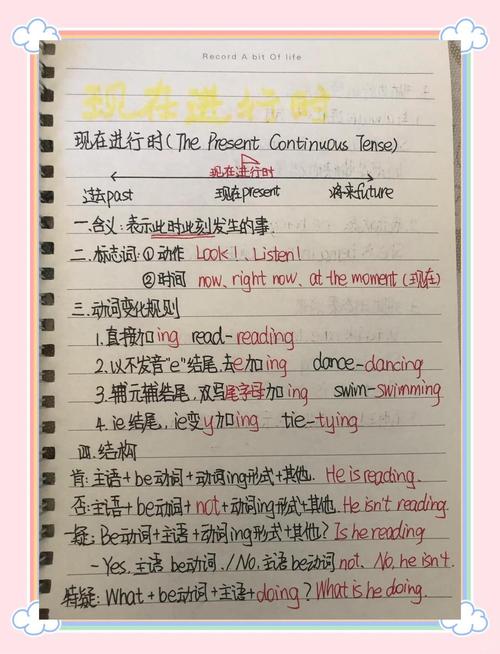 Record A bit Of life
现在进行时
现在进行时(The Present Continuous Tense)
现在进行时
过去past 现在present 将来future
一.含义:表示此时此刻发生的事
二.标志词:①动作 Look!、Listen!
②时间 now、right now、at the moment(现在)
三.动词变化规则
1.直接加ing read-reading
2.以不发音"e"结尾,去e加ing dance-dancing
3.辅元辅结尾,双写尾字母加ing swim-swimming
4.ie结尾,ie变y加ing tie-tying
四.结构
肯:主语+be动词+动词ing形式+其他.He is reading.
否:主语+be动词+not+动词ing形式+其他.He isn't reading.
一疑:Be动词+主语+动词ing形式+其他?Is he reading
-Yes,主语 be动词./No,主语 be动词 not. No, he isn't.
特疑:What+be动词+主语+doing?What is he doing.